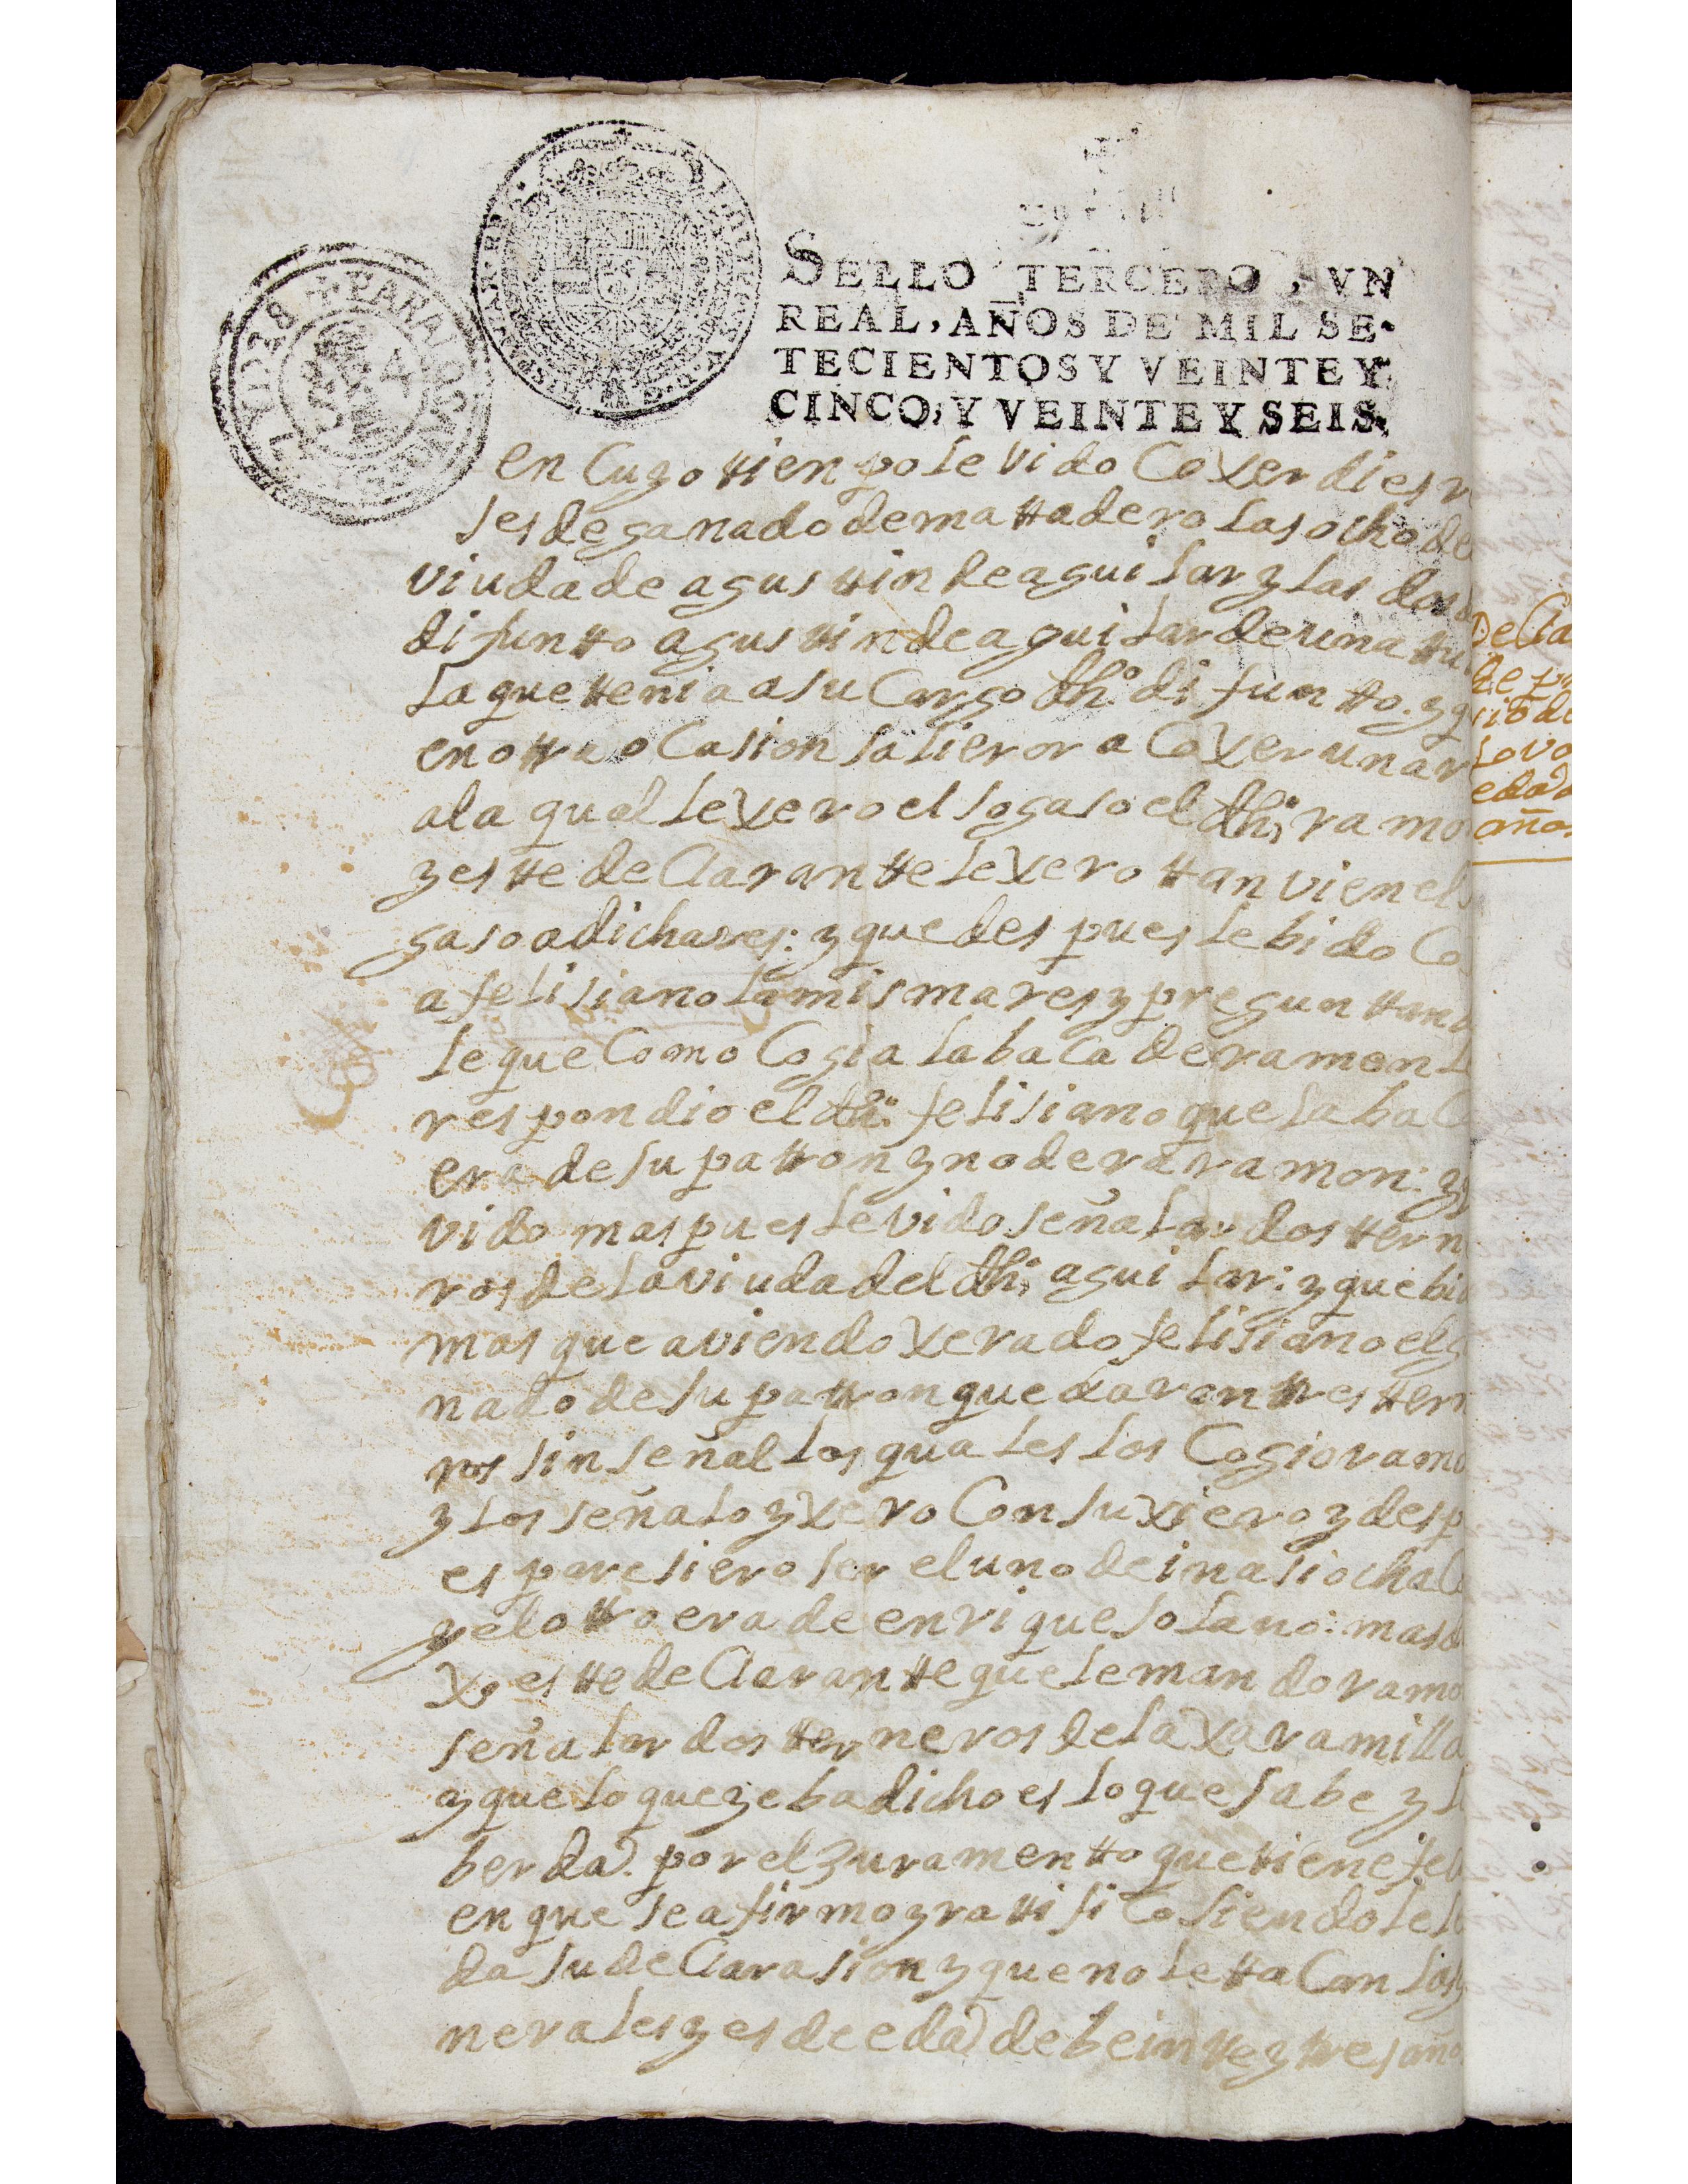 SELLO TERCERO, VN
REAL, AÑOS DE MIL SE-
TECIENTOS Y VEINTE Y
CINCO, Y VEINTE Y SEIS.
en Cuyo ttienpo le vido Coxer dies r
ses de ganado de mattadero las ocho de
viuda de agusttin de aguilar y las dos
difuntto agusttin de aguilar de una ttu
la que ttenia a su Cargo dho difuntto. y q
en ottra oCasion salieron a Coxer una r
a la qual le xero el so gaso el dho ramo
y estte deClarantte le xero ttanvien el
gaso a dicha res: y que despues le bido Co
a felisiano la misma res y preguntt
le que Como Cogia la baCa de ramon
respondio el dho felisiano que la baC
era de su pattron y no de ramon: y
vido mas pues le vido señalar dos ttern
ros de la viuda del dho aguilar: y que bi
mas que aviendo xerado felisiano el g
nado de su pattron quedaron ttres ttern
ros sin señal los quales los Cogio ramo
y los señalo y xero Con su xiero y desp
es paresiero ser el uno de inasio cha
y el ottro era de enrique solano: mas d
xo estte deClarantte que le mando ramo
señalar dos tterneros de la xaramilla
y que lo que ye ba dicho es lo que sabe y
berdad. por el yuramentto que ttiene fe
en que se afirmo y rattifiCo siendole
da su deClarasion y que no le ttaCan las
nerales y es de edad de beintte y ttres año
DeCla
de p
edad
años